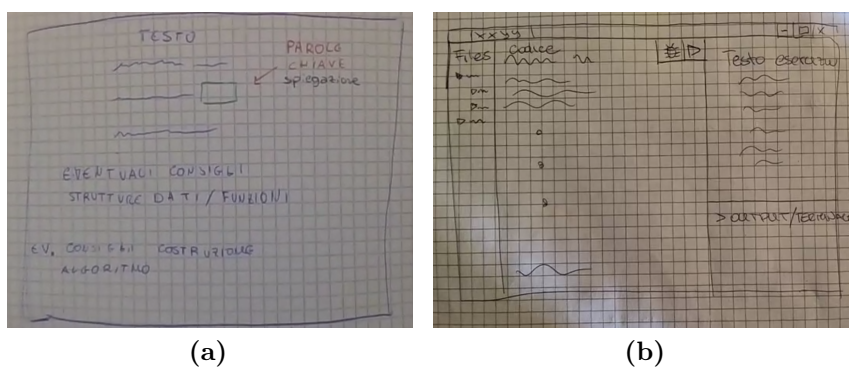 TESTO
PAROLE
CHIAVE
spiegazione
EVENTUALI CONSIGLI
STRUTTURE DATI / FUNZIONI
EV. CONSIGLI COSTRUZIONE
ALGORITMO
(a)
xxyy
- x
Files
Codice
Testo esercizio
> OUTPUT/TERMINALE
(b)